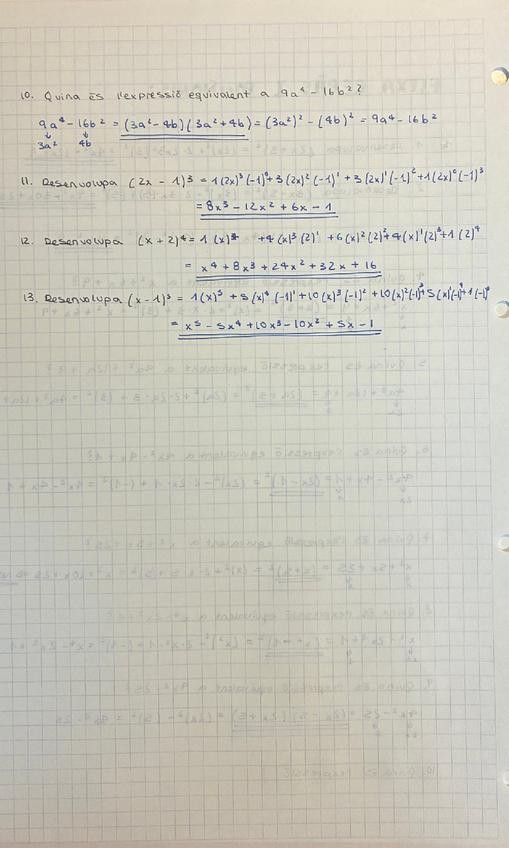 10. Quina és l'expressió equivalent a 9a⁴ - 16b²?
9a⁴ - 16b² = (3a² - 4b)(3a² + 4b) = (3a²)² - (4b)² = 9a⁴ - 16b²
↓ ↓
3a² 4b
11. Desenvolupa (2x - 1)³ = 1(2x)³(-1)⁰+3(2x)²(-1)¹ + 3(2x)¹(-1)²+1(2x)⁰(-1)³
= 8x³ - 12x² + 6x - 1
12. Desenvolupa (x + 2)⁴ = 1(x)⁴ +4(x)³(2)¹ +6(x)²(2)²+4(x)¹(2)³+1(2)⁴
= x⁴ + 8x³ + 24x² + 32x + 16
13. Desenvolupa (x - 1)⁵ = 1(x)⁵ + 5(x)⁴(-1)¹ + 10(x)³(-1)² + 10(x)²(-1)³+5(x)¹(-1)⁴+1(-1)⁵
= x⁵ - 5x⁴ + 10x³ - 10x² + 5x - 1